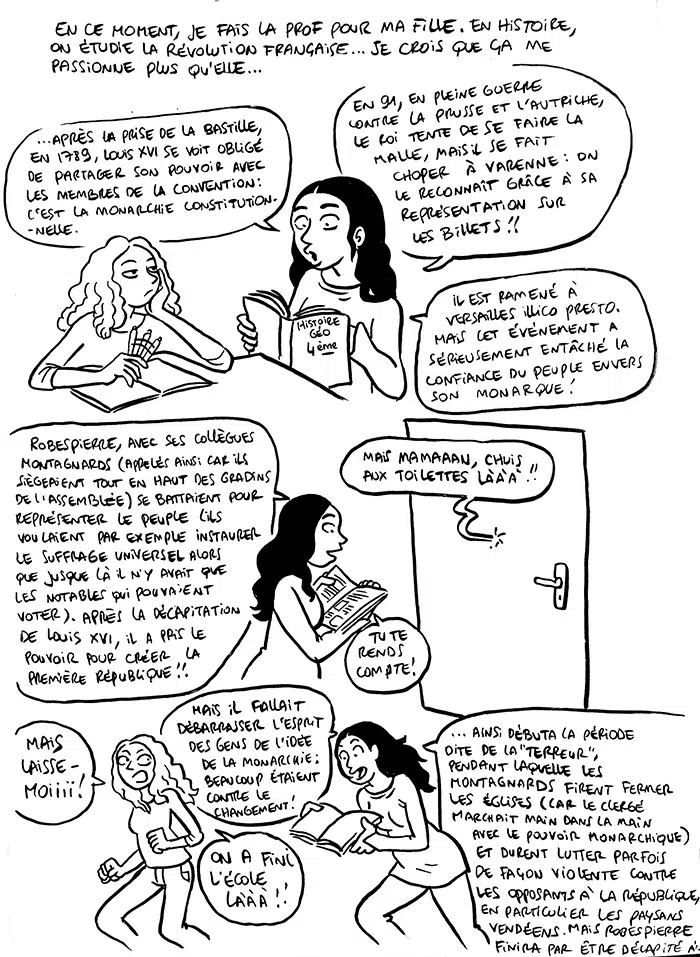 EN CE MOMENT, JE FAIS LA PROF POUR MA FILLE. EN HISTOIRE,
ON ÉTUDIE LA RÉVOLUTION FRANÇAISE... JE CROIS QUE ÇA ME
PASSIONNE PLUS QU'ELLE...
...APRÈS LA PRISE DE LA BASTILLE,
EN 1789, LOUIS XVI SE VOIT OBLIGÉ
DE PARTAGER SON POUVOIR AVEC
LES MEMBRES DE LA CONVENTION:
C'EST LA MONARCHIE CONSTITUTION-
-NELLE.
EN 91, EN PLEINE GUERRE
CONTRE LA PRUSSE ET L'AUTRICHE,
LE ROI TENTE DE SE FAIRE LA
MALLE, MAIS IL SE FAIT
CHOPER À VARENNE: ON
LE RECONNAÎT GRÂCE À SA
REPRÉSENTATION SUR
LES BILLETS!!
HISTOIRE
GÉO
4ème
IL EST RAMENÉ À
VERSAILLES ILLICO PRESTO.
MAIS CET ÉVÉNEMENT A
SÉRIEUSEMENT ENTÂCHÉ LA
CONFIANCE DU PEUPLE ENVERS
SON MONARQUE!
ROBESPIERRE, AVEC SES COLLÈGUES
MONTAGNARDS (APPELÉS AINSI CAR ILS
SIÉGEAIENT TOUT EN HAUT DES GRADINS
DE L'ASSEMBLÉE) SE BATTAIENT POUR
REPRÉSENTER LE PEUPLE (ILS
VOULAIENT PAR EXEMPLE INSTAURER
LE SUFFRAGE UNIVERSEL ALORS
QUE JUSQUE LÀ IL N'Y AVAIT QUE
LES NOTABLES QUI POUVAIENT
VOTER). APRÈS LA DÉCAPITATION
DE LOUIS XVI, IL A PRIS LE
POUVOIR POUR CRÉER LA
PREMIÈRE RÉPUBLIQUE!!
MAIS MAMAAAN, CHUIS
AUX TOILETTES LÀÀÀ!!
TU TE
RENDS
COMPTE!
MAIS
LAISSE-
MOIIIII!
MAIS IL FALLAIT
DÉBARRASSER L'ESPRIT
DES GENS DE L'IDÉE
DE LA MONARCHIE:
BEAUCOUP ÉTAIENT
CONTRE LE
CHANGEMENT!
ON A FINI
L'ÉCOLE
LÀÀÀ!!
... AINSI DÉBUTA LA PÉRIODE
DITE DE LA "TERREUR",
PENDANT LAQUELLE LES
MONTAGNARDS FIRENT FERMER
LES ÉGLISES (CAR LE CLERGÉ
MARCHAIT MAIN DANS LA MAIN
AVEC LE POUVOIR MONARCHIQUE)
ET DURENT LUTTER PARFOIS
DE FAÇON VIOLENTE CONTRE
LES OPPOSANTS À LA RÉPUBLIQUE,
EN PARTICULIER LES PAYSANS
VENDÉENS. MAIS ROBESPIERRE
FINIRA PAR ÊTRE DÉCAPITÉ À